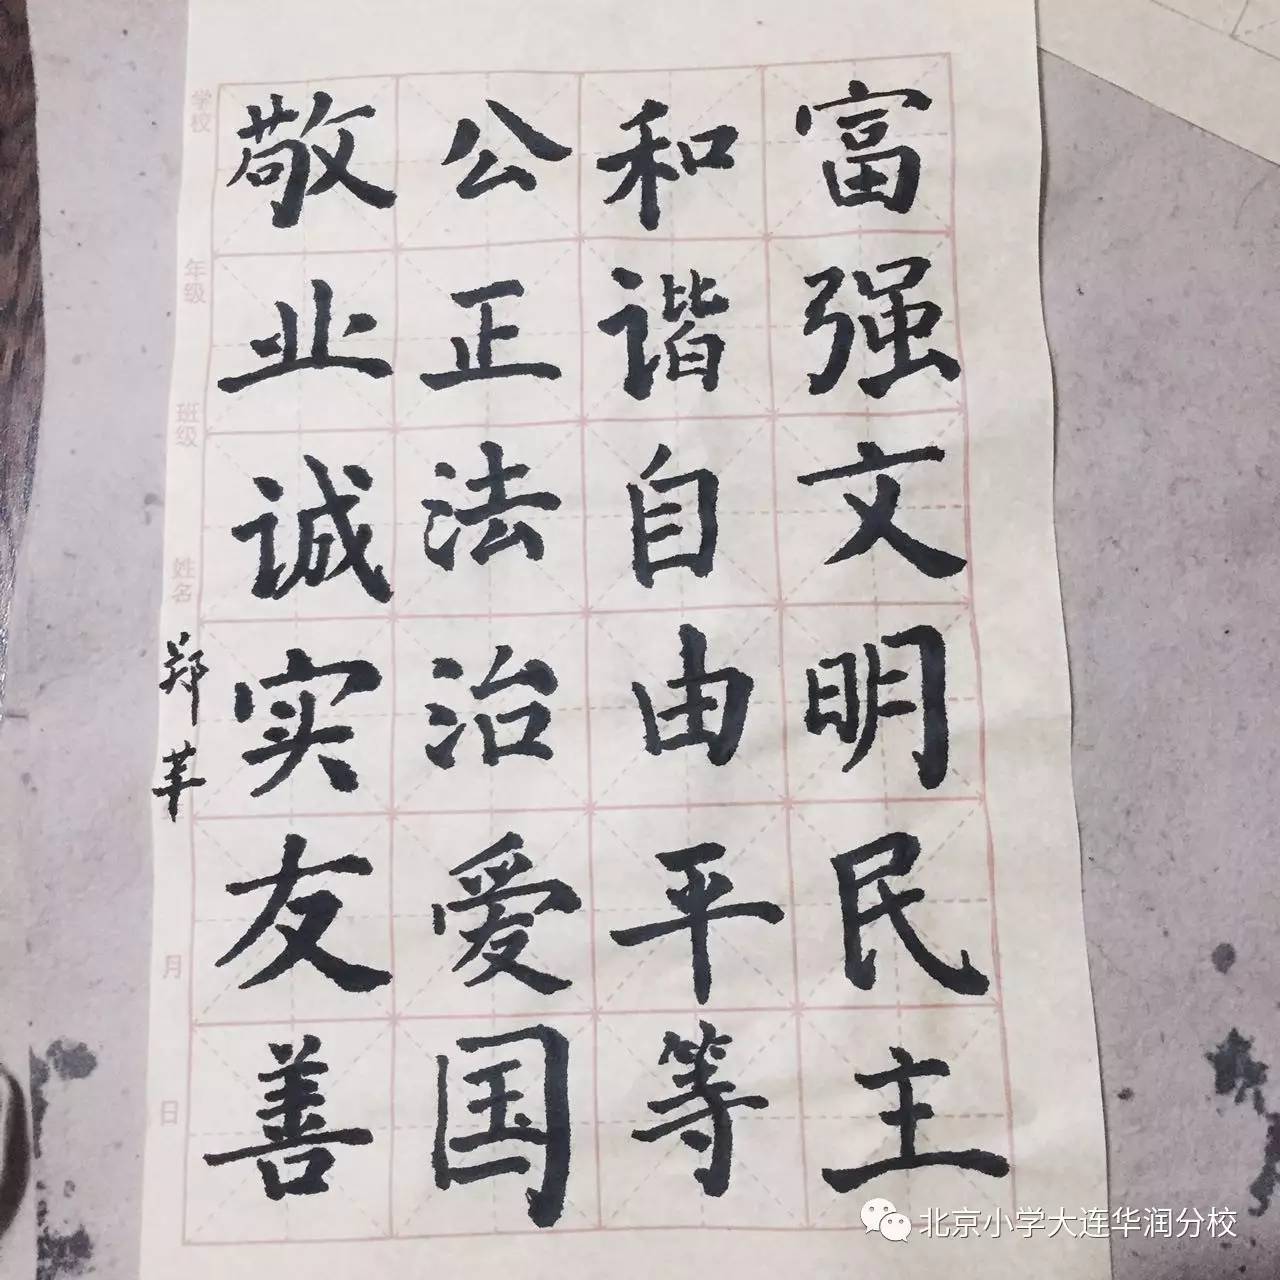 富强文明民主
和谐自由平等
公正法治爱国
敬业诚实友善
学校 年级 班级 姓名 郑 月 日
北京小学大连华润分校